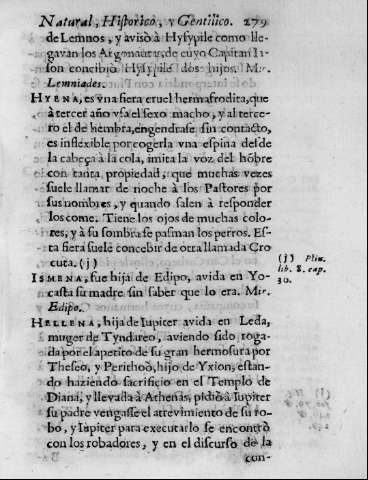 Natural, Historico, y Gentilico. 279
de Lemnos, y avisò à Hysypile como lle-
gavan los Argonautas, de cuyo Capitan Ia-
son concibiò Hysypile dos hijos. Mir.
Lemniades.
HYENA, es vna fiera cruel hermafrodita, que
à tercer año vsa el sexo macho, y al terce-
ro el de hembra, engendrase sin contacto,
es inflexible por cogerla vna espina desde
la cabeça à la cola, imita la voz del hõbre
con tanta propiedad, que muchas vezes
suele llamar de noche à los Pastores por
sus nombres, y quando salen à responder
los come. Tiene los ojos de muchas colo-
res, y à su sombra se pasman los perros. Es-
ta fiera suele concebir de otra llamada Cro
cuta. (j)
(j) Plin.
lib. 8. cap.
30.
ISMENA, fue hija de Edipo, avida en Yo-
casta su madre sin saber que lo era. Mir.
Edipo.
HELLENA, hija de Iupiter avida en Leda,
muger de Tyndareo, aviendo sido roga-
da por el apetito de su gran hermosura por
Theseo, y Perithoò, hijo de Yxion, estan-
do haziendo sacrificio en el Templo de
Diana, y llevada à Athenas, pidiò à Iupiter
su padre vengasse el atrevimiento de su ro-
bo, y Iupiter para executarlo se encontrò
con los robadores, y en el discurso de la
con-